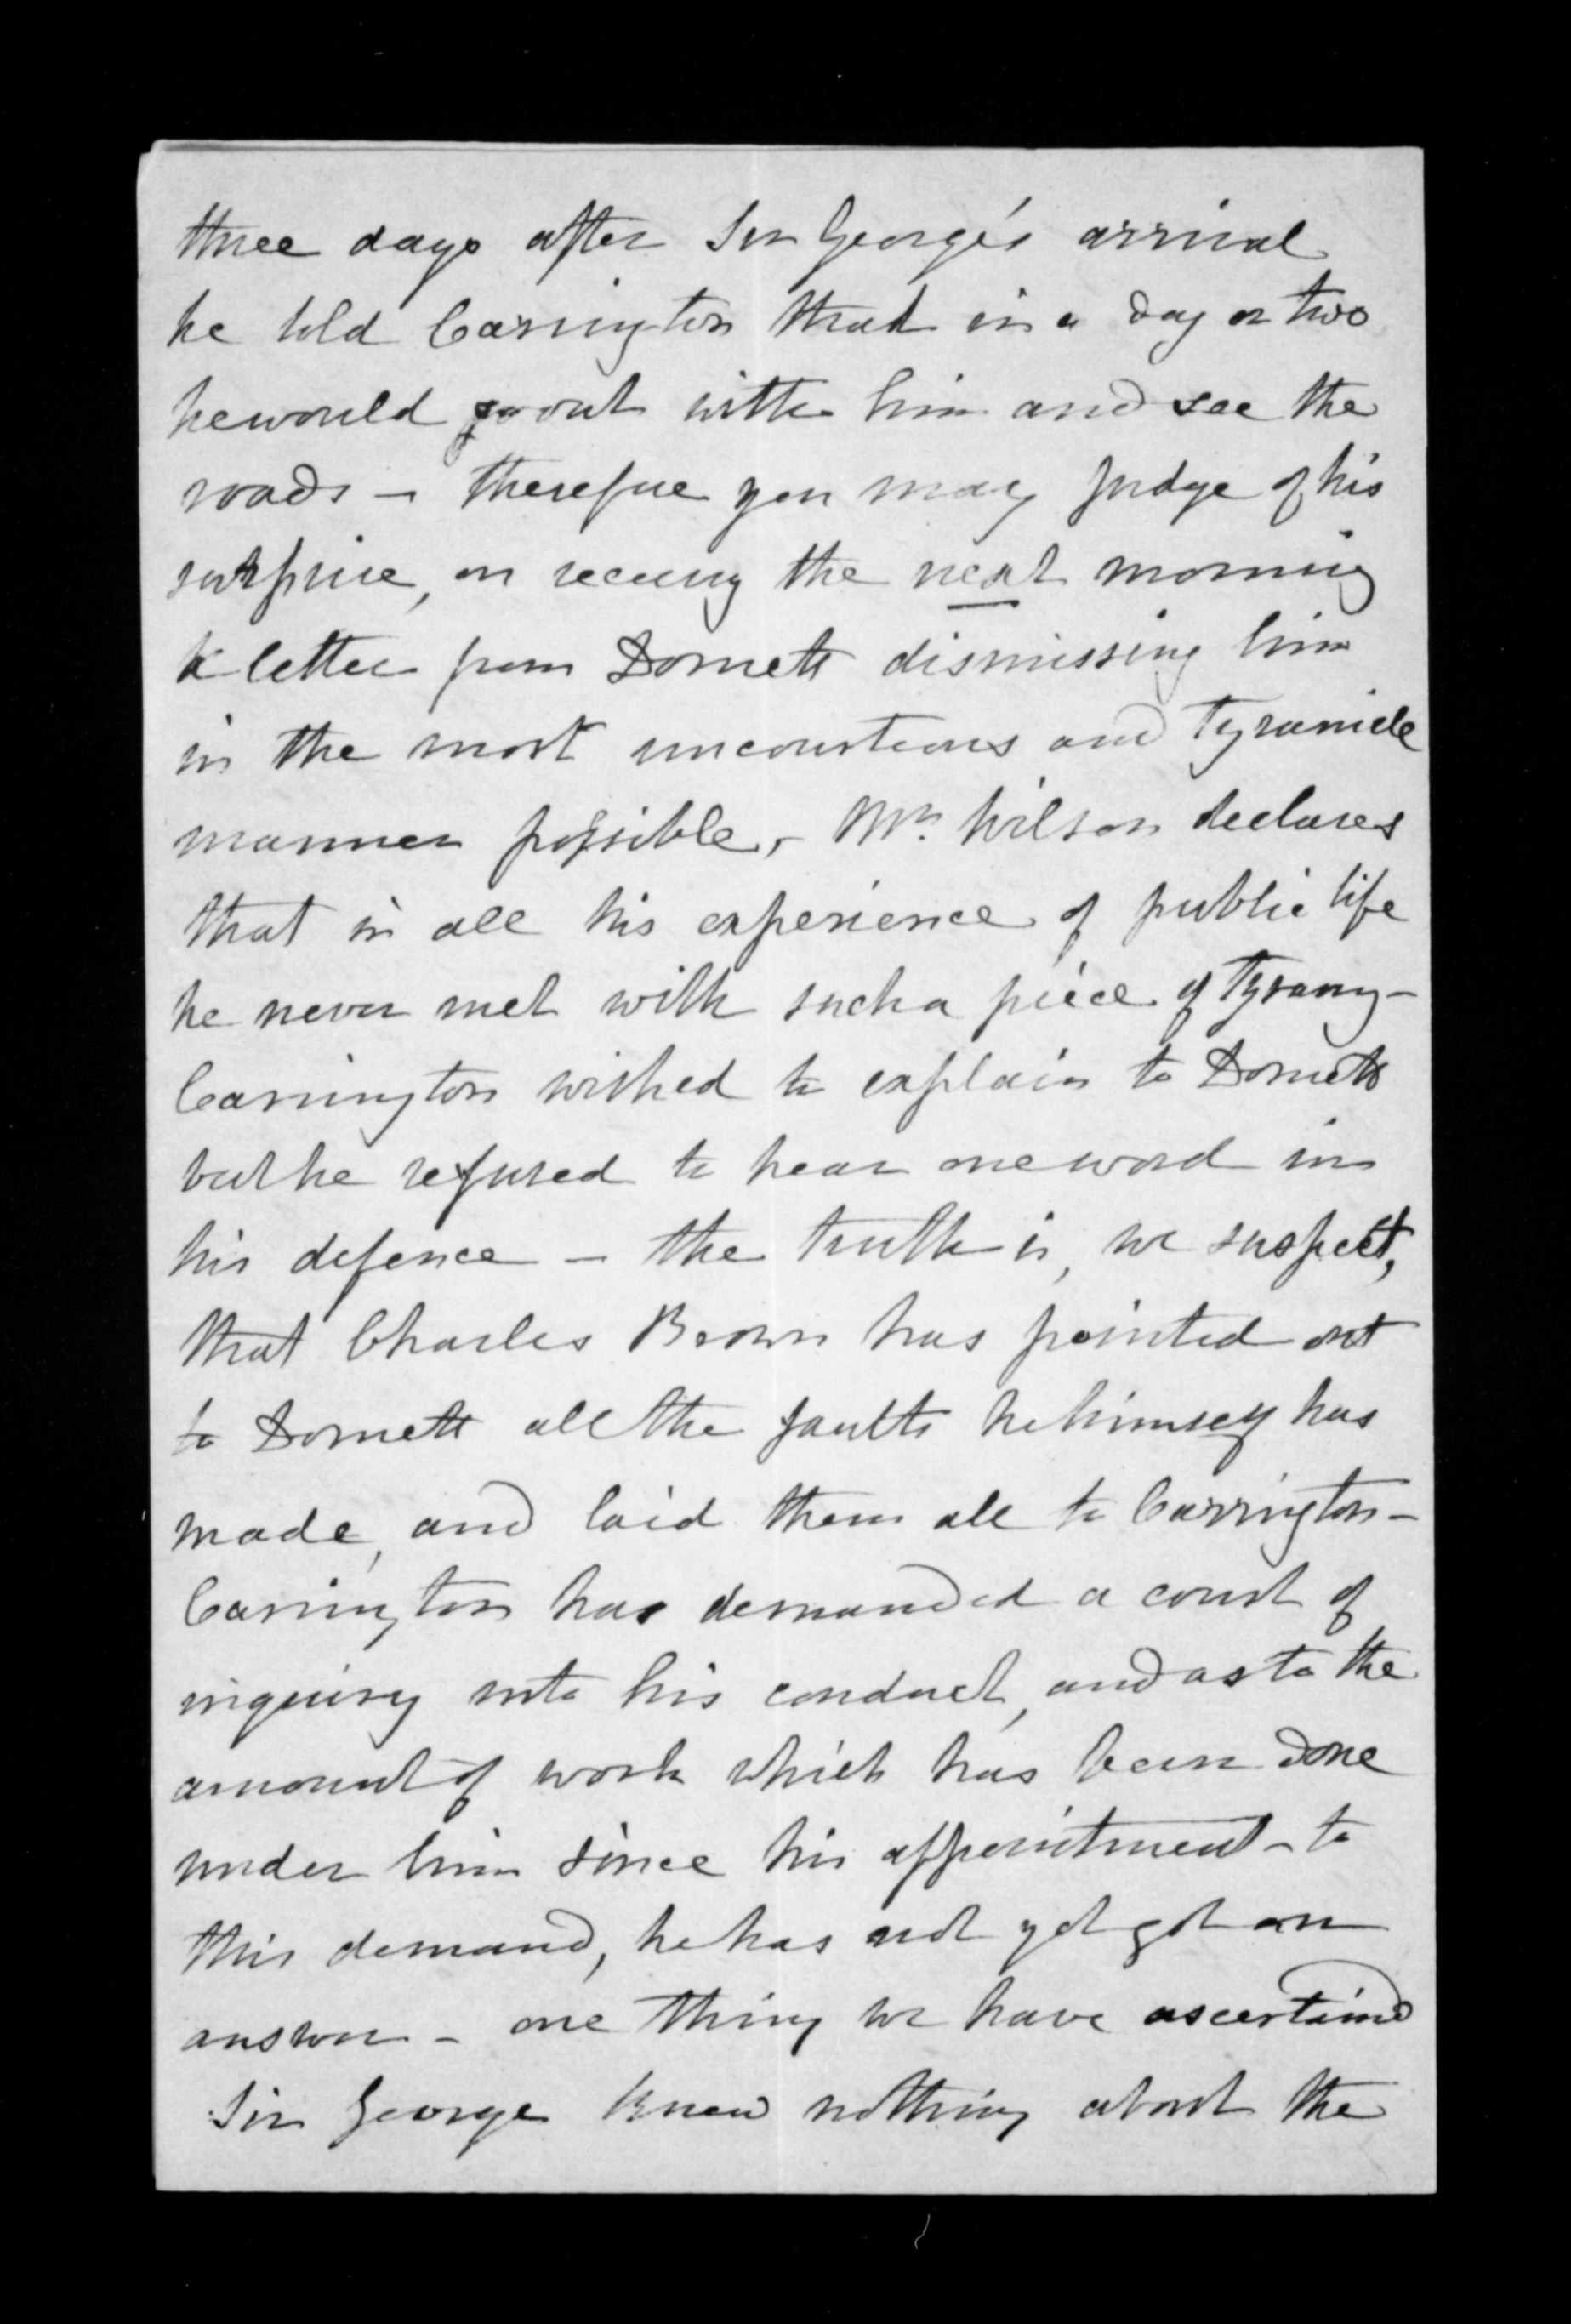 three days after Sir George's arrival
he told Carrington that in a day or two
he would go out with him and see the
roads – therefore you may judge of his
surprise, on receivg the next morning
a letter from Domett dismissing him
in the most uncourteous and Tyranicle
manner possible, – Mr. Wilson declares
that in all his experience of public life
he never met with such a piece of Tyrany –
Carrington wished to explain to Domett
but he refused to hear one word in
his defence – the truth is, we suspect,
that Charles Brown has pointed out
to Domett all the faults he himself has
made, and laid them all to Carrington –
Carrington has demanded a court of
inquiry into his conduct, and as to the
amount of work which has been done
under him since his appointment – to
this demand, he has not yet got an
answer – one thing we have ascertained
Sir George knew nothing about the